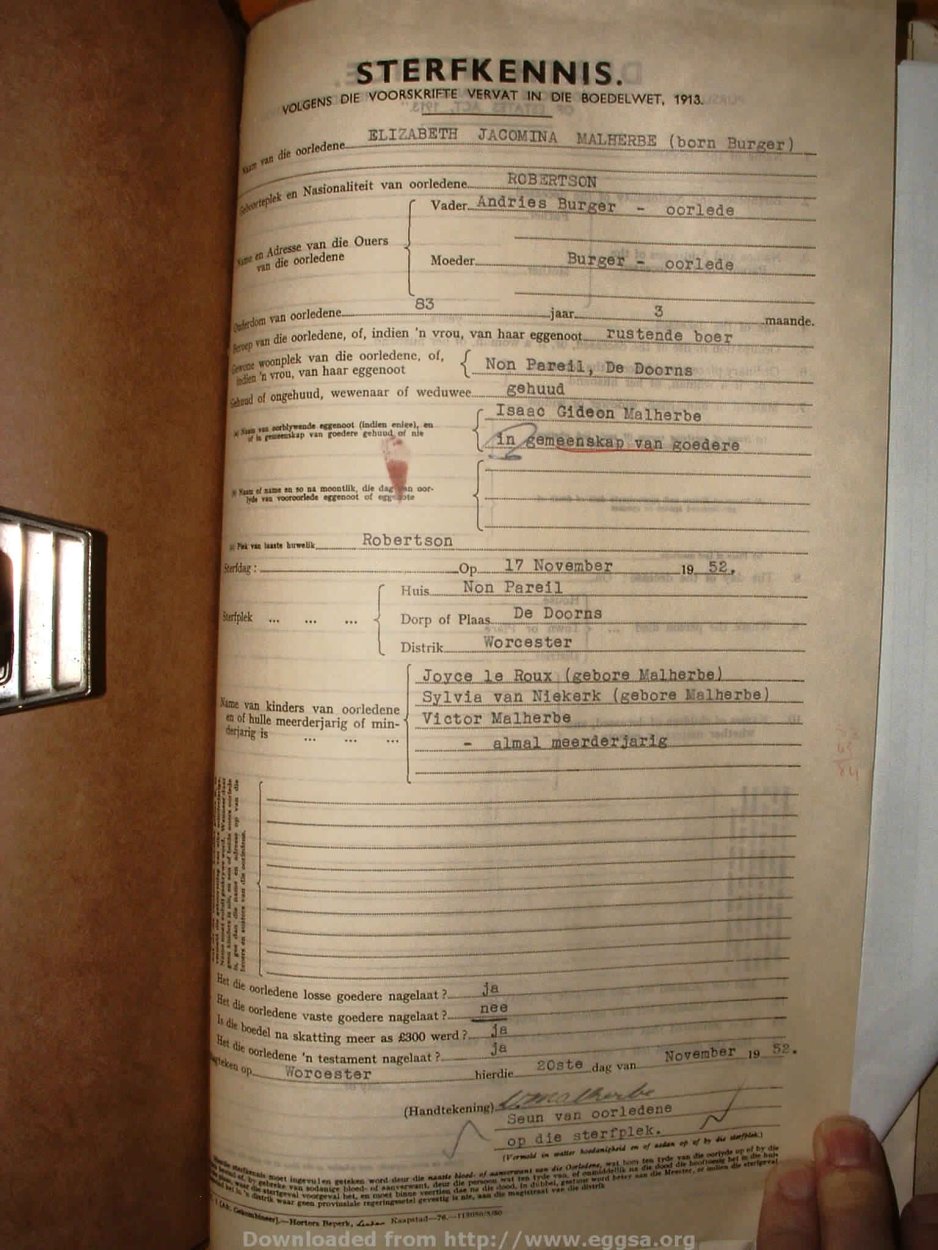 STERFKENNIS.
VOLGENS DIE VOORSKRIFTE VERVAT IN DIE BOEDELWET, 1913.
Naam van die oorledene ELIZABETH JACOMINA MALHERBE (born Burger)
Geboorteplek en Nasionaliteit van oorledene ROBERTSON
Vader Andries Burger - oorlede
Name en Adresse van die Ouers
van die oorledene
Moeder Burger - oorlede
Ouderdom van oorledene 83 jaar 3 maande.
Beroep van die oorledene, of, indien 'n vrou, van haar eggenoot rustende boer
Gewone woonplek van die oorledene, of,
indien 'n vrou, van haar eggenoot Non Pareil, De Doorns
Gehuud of ongehuud, wewenaar of weduwee gehuud
(a) Naam van oorblywende eggenoot (indien enige), en Isaac Gideon Malherbe
of in gemeenskap van goedere gehuud of nie in gemeenskap van goedere
(b) Naam of name en so na moontlik, die dag van oor-
lyde van vooroorlede eggenoot of eggenote
(c) Plek van laaste huwelik Robertson
Sterfdag : Op 17 November 19 52.
Huis Non Pareil
Sterfplek ... ... ... Dorp of Plaas De Doorns
Distrik Worcester
Joyce le Roux (gebore Malherbe)
Name van kinders van oorledene Sylvia van Niekerk (gebore Malherbe)
en of hulle meerderjarig of min- Victor Malherbe
derjarig is ... ... ... - almal meerderjarig
Het die oorledene losse goedere nagelaat ? ja
Het die oorledene vaste goedere nagelaat ? nee
Is die boedel na skatting meer as £300 werd ? ja
Het die oorledene 'n testament nagelaat ? ja
Worcester hierdie 20ste dag van November 19 52.
(Handtekening) Malherbe
Seun van oorledene
op die sterfplek.
(Vermeld in watter hoedanigheid en of sodan op of by die sterfplek.)
Hortors Beperk, Kaapstad
Downloaded from http://www.eggsa.org